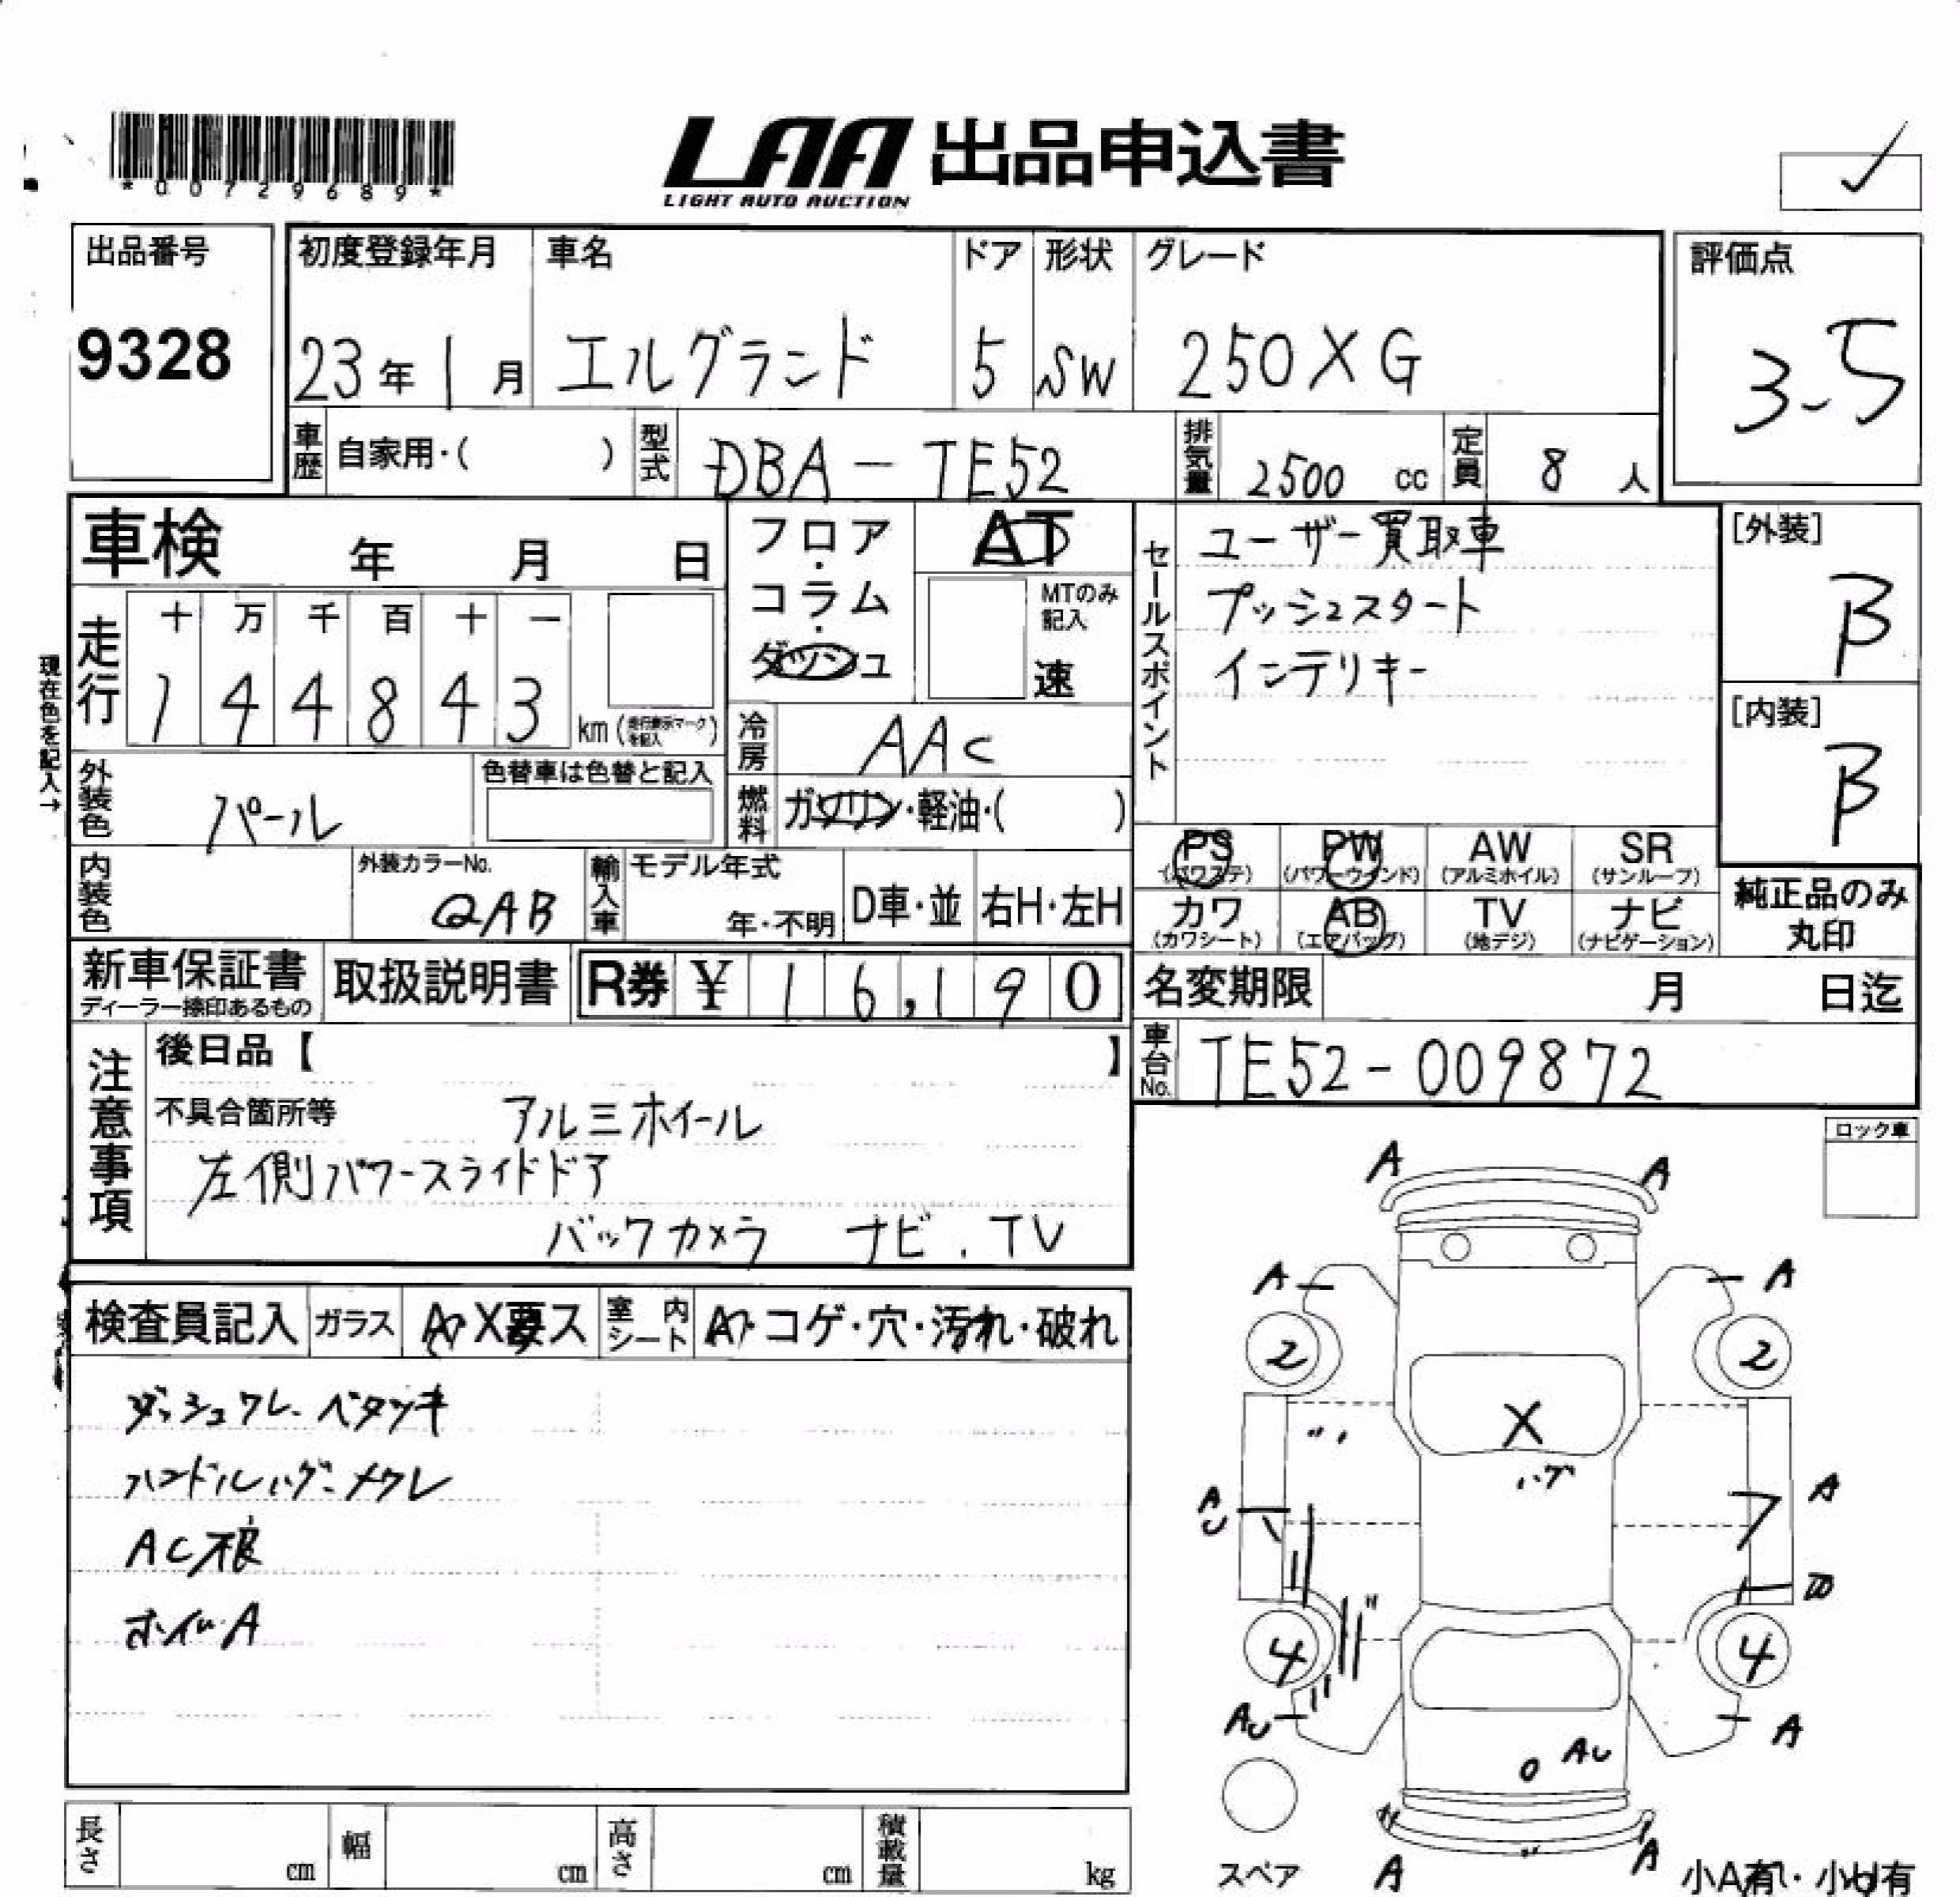 *00729689*
LAA 出品申込書
LIGHT AUTO AUCTION
出品番号
9328
初度登録年月 車名 ドア 形状 グレード
23年 1月 エルグランド 5 SW 250XG
評価点
3.5
車歴 自家用・( ) 型式 DBA-TE52 排気量 2500 cc 定員 8 人
車検 年 月 日
フロア・コラム・ダッシュ
AT
MTのみ記入
速
走行 十 万 千 百 十 一
1 4 4 8 4 3 km (走行表示マークを記入)
現在色を記入→
冷房 AAC
外装色 パール
色替車は色替と記入
燃料 ガソリン・軽油・( )
内装色
外装カラーNo.
QAB
輸入車 モデル年式
年・不明 D車・並 右H・左H
セールスポイント
ユーザー買取車
プッシュスタート
インテリキー
[外装]
B
[内装]
B
PS PW AW SR
(パワステ) (パワーウインド) (アルミホイル) (サンルーフ)
カワ AB TV ナビ
(カワシート) (エアバッグ) (地デジ) (ナビゲーション)
純正品のみ
丸印
新車保証書
ディーラー捺印あるもの
取扱説明書
R券 ¥ 16,190
名変期限 月 日迄
車台No. TE52-009872
注意事項
後日品【 】
不具合箇所等 アルミホイール
左側パワースライドドア
バックカメラ ナビ.TV
ロック車
検査員記入 ガラス X要ス 室内シート コゲ・穴・汚れ・破れ
ダッシュワレ・ベタツキ
ハンドルハゲ・メクレ
AC不良
ホイルA
A A
A A
2 2
X
ハゲ
AU A
4 4
AU A
AU
A A
スペア
小A有・小U有
長さ cm 幅 cm 高さ cm 積載量 kg